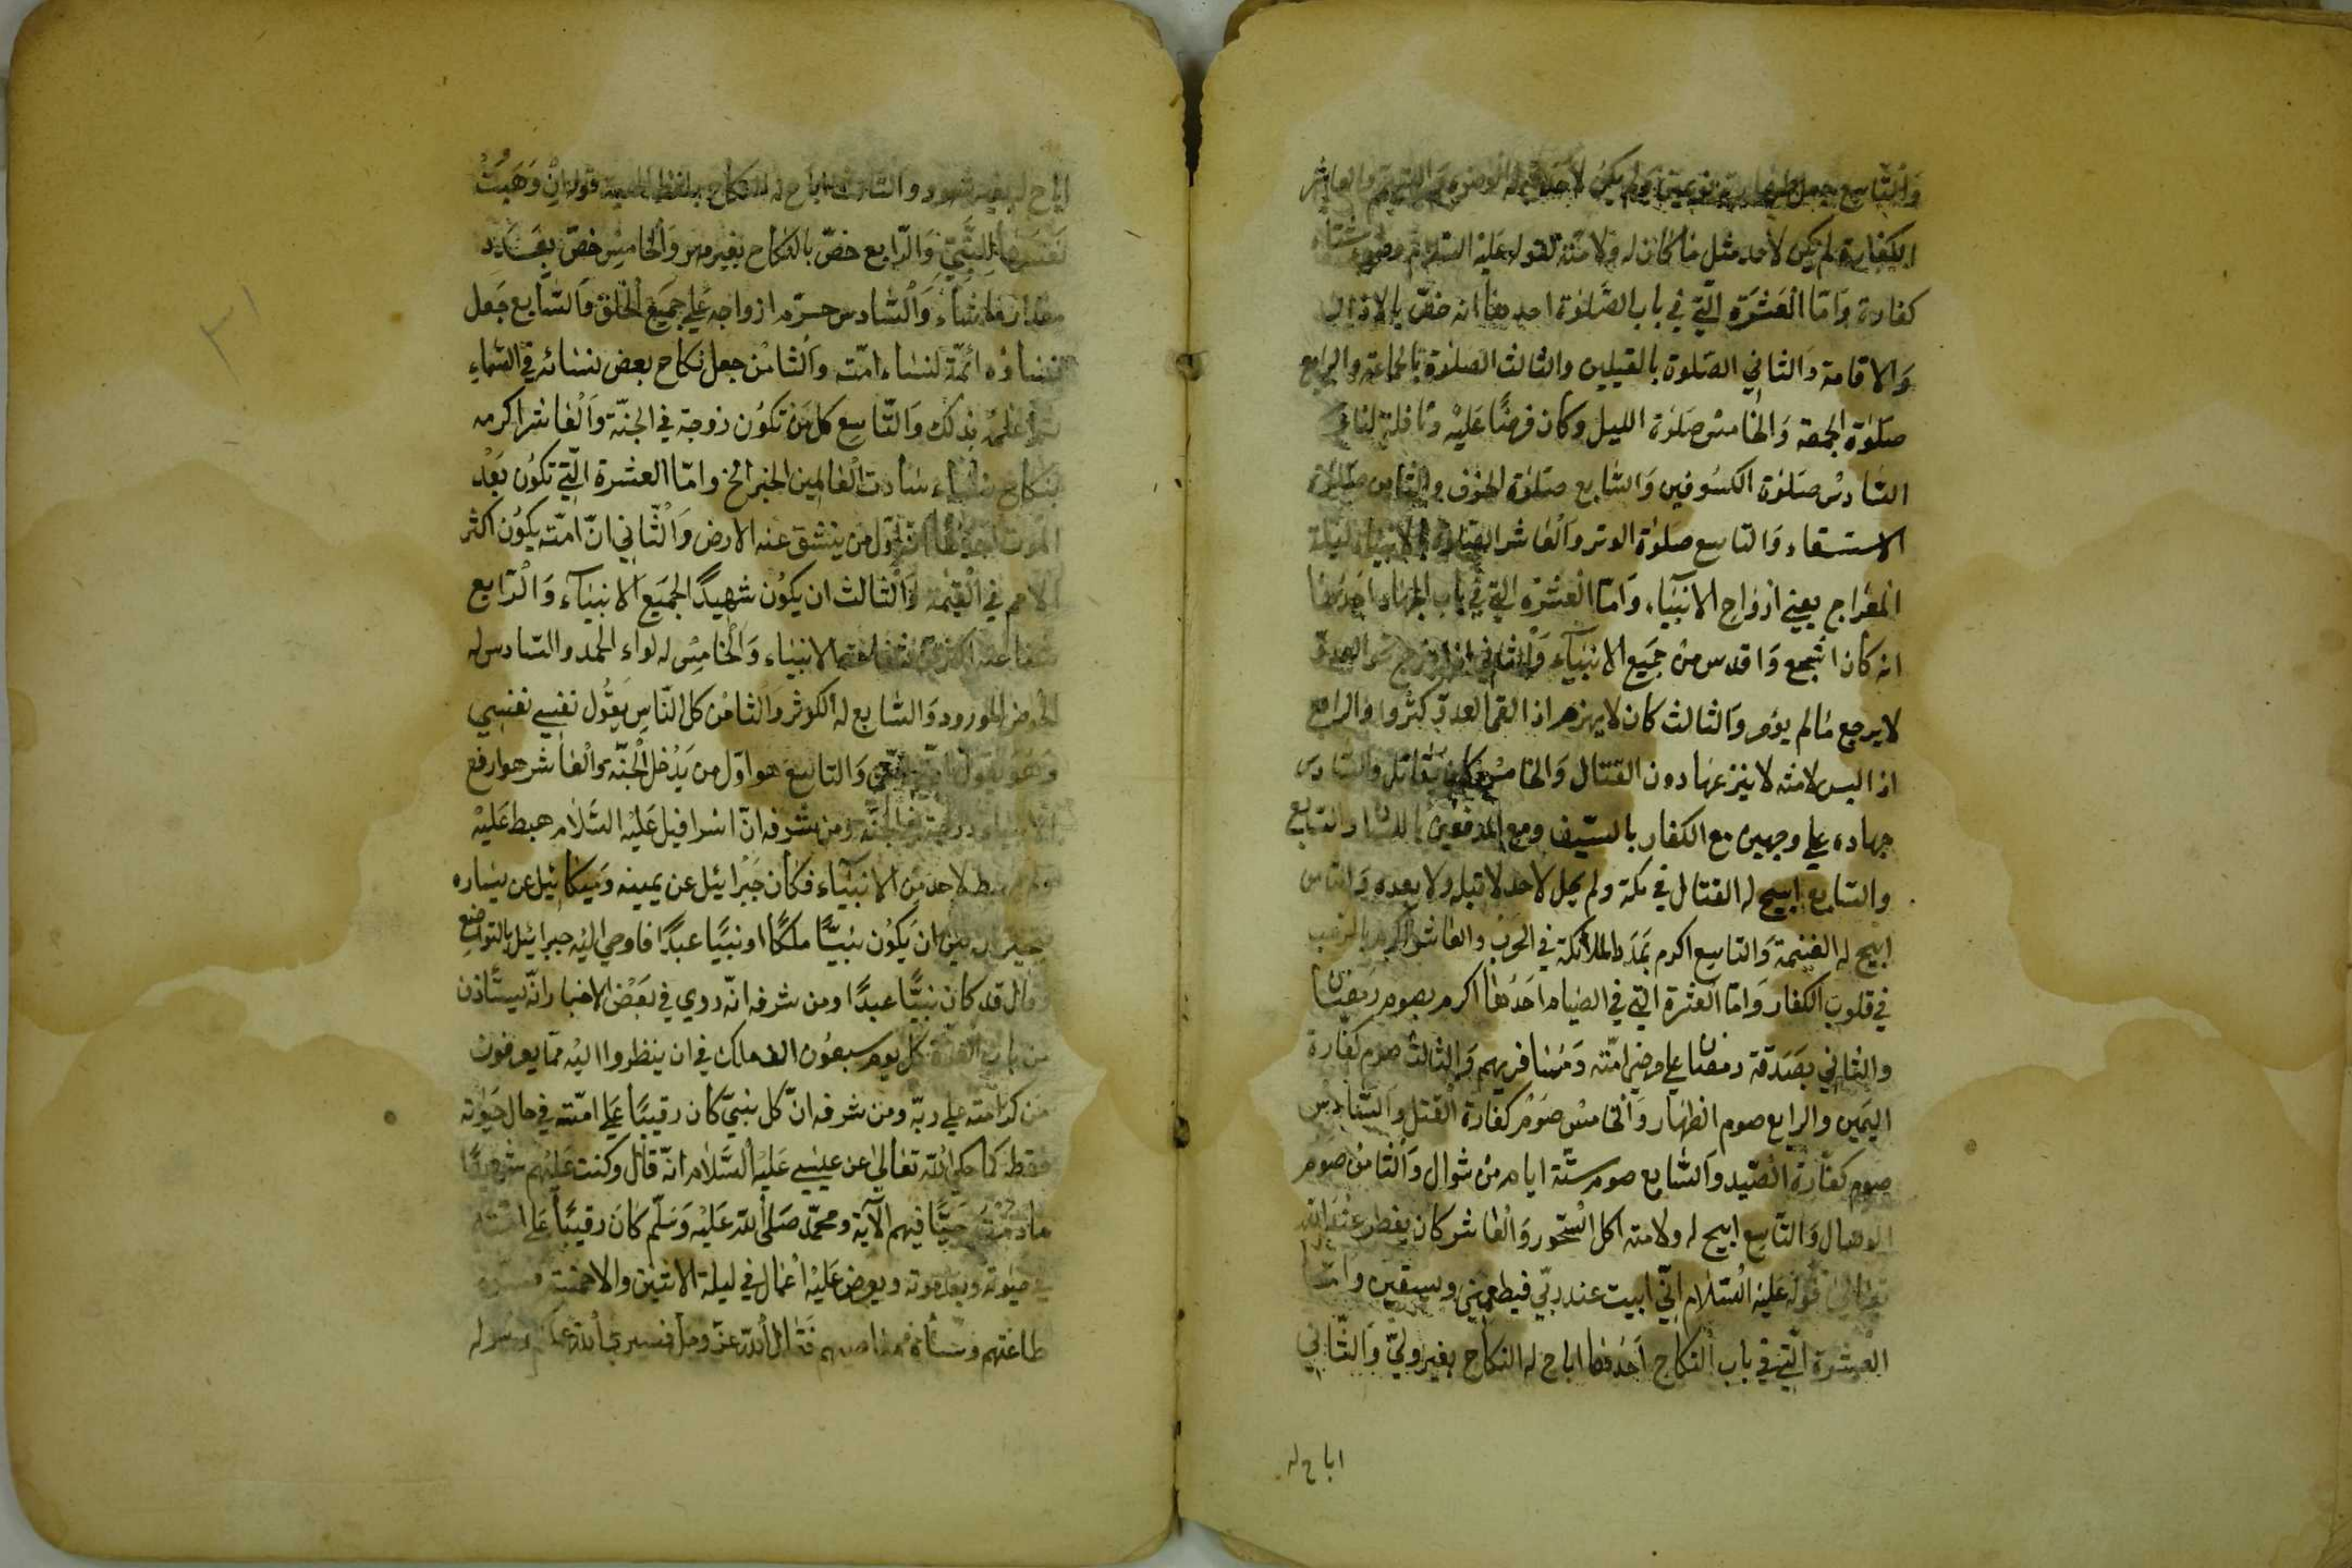 والتاسع جعل طهارته نوعين ولم يكن لاحد قبله الوضوء والتيمم والعاشر
الكفارة لم يكن لاحد مثل ما كان له ولامته لقوله عليه السلام
كفارة وَامّا العَشرَة الّتي في باب الصّلوٰة احدهٰا انه خصّ بالاذان
وَالاقامة وَالثاني الصّلوة بالقبلين والثالث الصلوة بالجماعة والرابع
صَلوٰة الجمعة وَالخامسْ صَلوٰة الليل وكان فرضًا عَليْه ونافلة لنا
السّادسْ صَلوٰة الكسُوفين وَالسّابع صَلوٰة الخوف والثامن صَلوٰة
الاستسقاء وَالتاسع صَلوٰة الوتر وَالعٰاشر الصّلوة بالانبياء ليلة
المعْراج يعني ازواج الانبيٰاء وَامّا العشرة التي في باب الجهاد احدهٰا
انه كان اشجع وَاقدس منْ جميَع الانبيٰآء وَالثاني اذا خرج العدوّ
لايرجع مٰالم يؤمر وَالثالث كان لاينهزم اذا القى العدوّ كثروا والرابع
اذا لبس لامته لاينزعهٰا دون القتال وَالخامسْ كان يقاتل والسّادس
جهاده علي وجهين مع الكفار بالسّيف ومع المنافقين باللسان والسّابع
والسّابع ابيح له القتال في مكة ولم يحل لاحد لاقبله ولابعده وَالثامن
ابيح له الغنيمة وَالتاسع اكرم بمَدَد الملائكة في الحَربْ والعٰاشر اكرم بالرعب
في قلوب الكفار وَامّا العَشرة التي في الصيٰام احَدُهٰا اكرم بصوم رمضٰان
والثاني بصَدَقة رمضان علي مرضي امّته وَمُسٰافريهم وَالثالث صوم كفارة
اليَمين والرابع صوم الظهٰار وَالخامسْ صَومْ كفارة القتل وَالسّادس
صوم كفّارة الصّيد وَالسّابع صوم ستّة ايام منْ شوال وَالثامن صَوم
الوصال وَالتّاسع ابيح له ولامته اكل السّحور وَالعٰاشر كان يفطر عنْدَ الله
تعٰالىٰ قوله عَليْه السّلٰام انّي ابيت عند ربّي فيطعمني ويسقين وامّا
العشرة الّتي في باب النكاح اَحَدُهٰا اباح له النكاح بغير وليّ وَالثّاني
اباح له
اباح له بغير شهود والثالث اباح له النكاح بلفظ الهبة قوله اِنْ وَهَبَتْ
نَفْسَهٰا لِلنَّبيّ وَالرّابع خصّ بالنكاح بغير مهر وَالخامِسْ خصّ بعَدَد
مٰاشٰاء وَالسّادس حرّم ازواجه عَلي جميَع الخلق وَالسّابع جَعل
نسٰاؤه ائمّة لنسٰاء امّته وَالثامنْ جعل نكاح بعض نسٰائه في السّمٰاء
بذلك وَالتّاسع كل مَنْ تكوُن زوجة في الجنّة وَالعٰاشر اكرمه
بنكاح نسٰاء سٰادت العٰالمين الخبر الخ وامّا العشرة الّتي تكوُن بَعْد
الموت احدهٰا انه اوّل من ينشق عنه الارض وَالثّاني انّ امّته يكوُن اكثر
الامم في القيٰمة وَالثالث ان يكوُن شهيدًا لجميَع الانبيٰآء وَالرّابع
شفاعته اكثر من شفاعة الانبيٰاء وَالخامِسْ له لواء الحمد والسّادس له
الحوض المورود وَالسّابع له الكوثر وَالثامنْ كل النّاسِ يقوُل نفسي نفسي
وَهُو يقول امّتي امّتي وَالتاسع هو اوّل من يَدْخل الجنّة وَالعٰاشر هو ارفع
الانبياء درجة في الجنّة ومن شرفه انّ اسرافيل عَليْه السّلٰام هبط عَليْه
ولم يهبط لاحد مِن الانبيٰآء فكان جبْرائيل عن يمينه وَميكائيل عن يسٰاره
بين ان يَكوُن نبيًّا ملكًا او نبيًّا عبدًا فاوحي اليْه جبرائيل بالتواضع
وقٰال قد كان نبيًّا عبدًا ومن شرفه انّه روي في بَعْض الاخبٰار انّه يستأذن
من باب كل يوم سبعُون الف ملك في ان ينظروا اليْه ممّا يعرفون
من كرامته علي ربّه ومن شرفه انّ كل نبيّ كان رقيبًا عَلي امّته في حال حَيٰوته
فقط كمٰا حكي الله تعٰالىٰ عن عيسي عَليْه السّلٰام انّه قٰال وكنت عَليهم شهيدًا
مٰادمْتُ حَيًّا فيهم الٓاية ومحمّد صَلّى الله عَليْه وَسَلّم كانَ رقيبًا عَلي امّته
في حيٰوته وبعد موته ويعرض عَليْه اعْمال في ليلة الاثنين والاخمسة
طاعتهم وسٰاءه معٰاصيهم فقٰال الله عزّ وجلّ فسيري الله عملكم ورسُوله